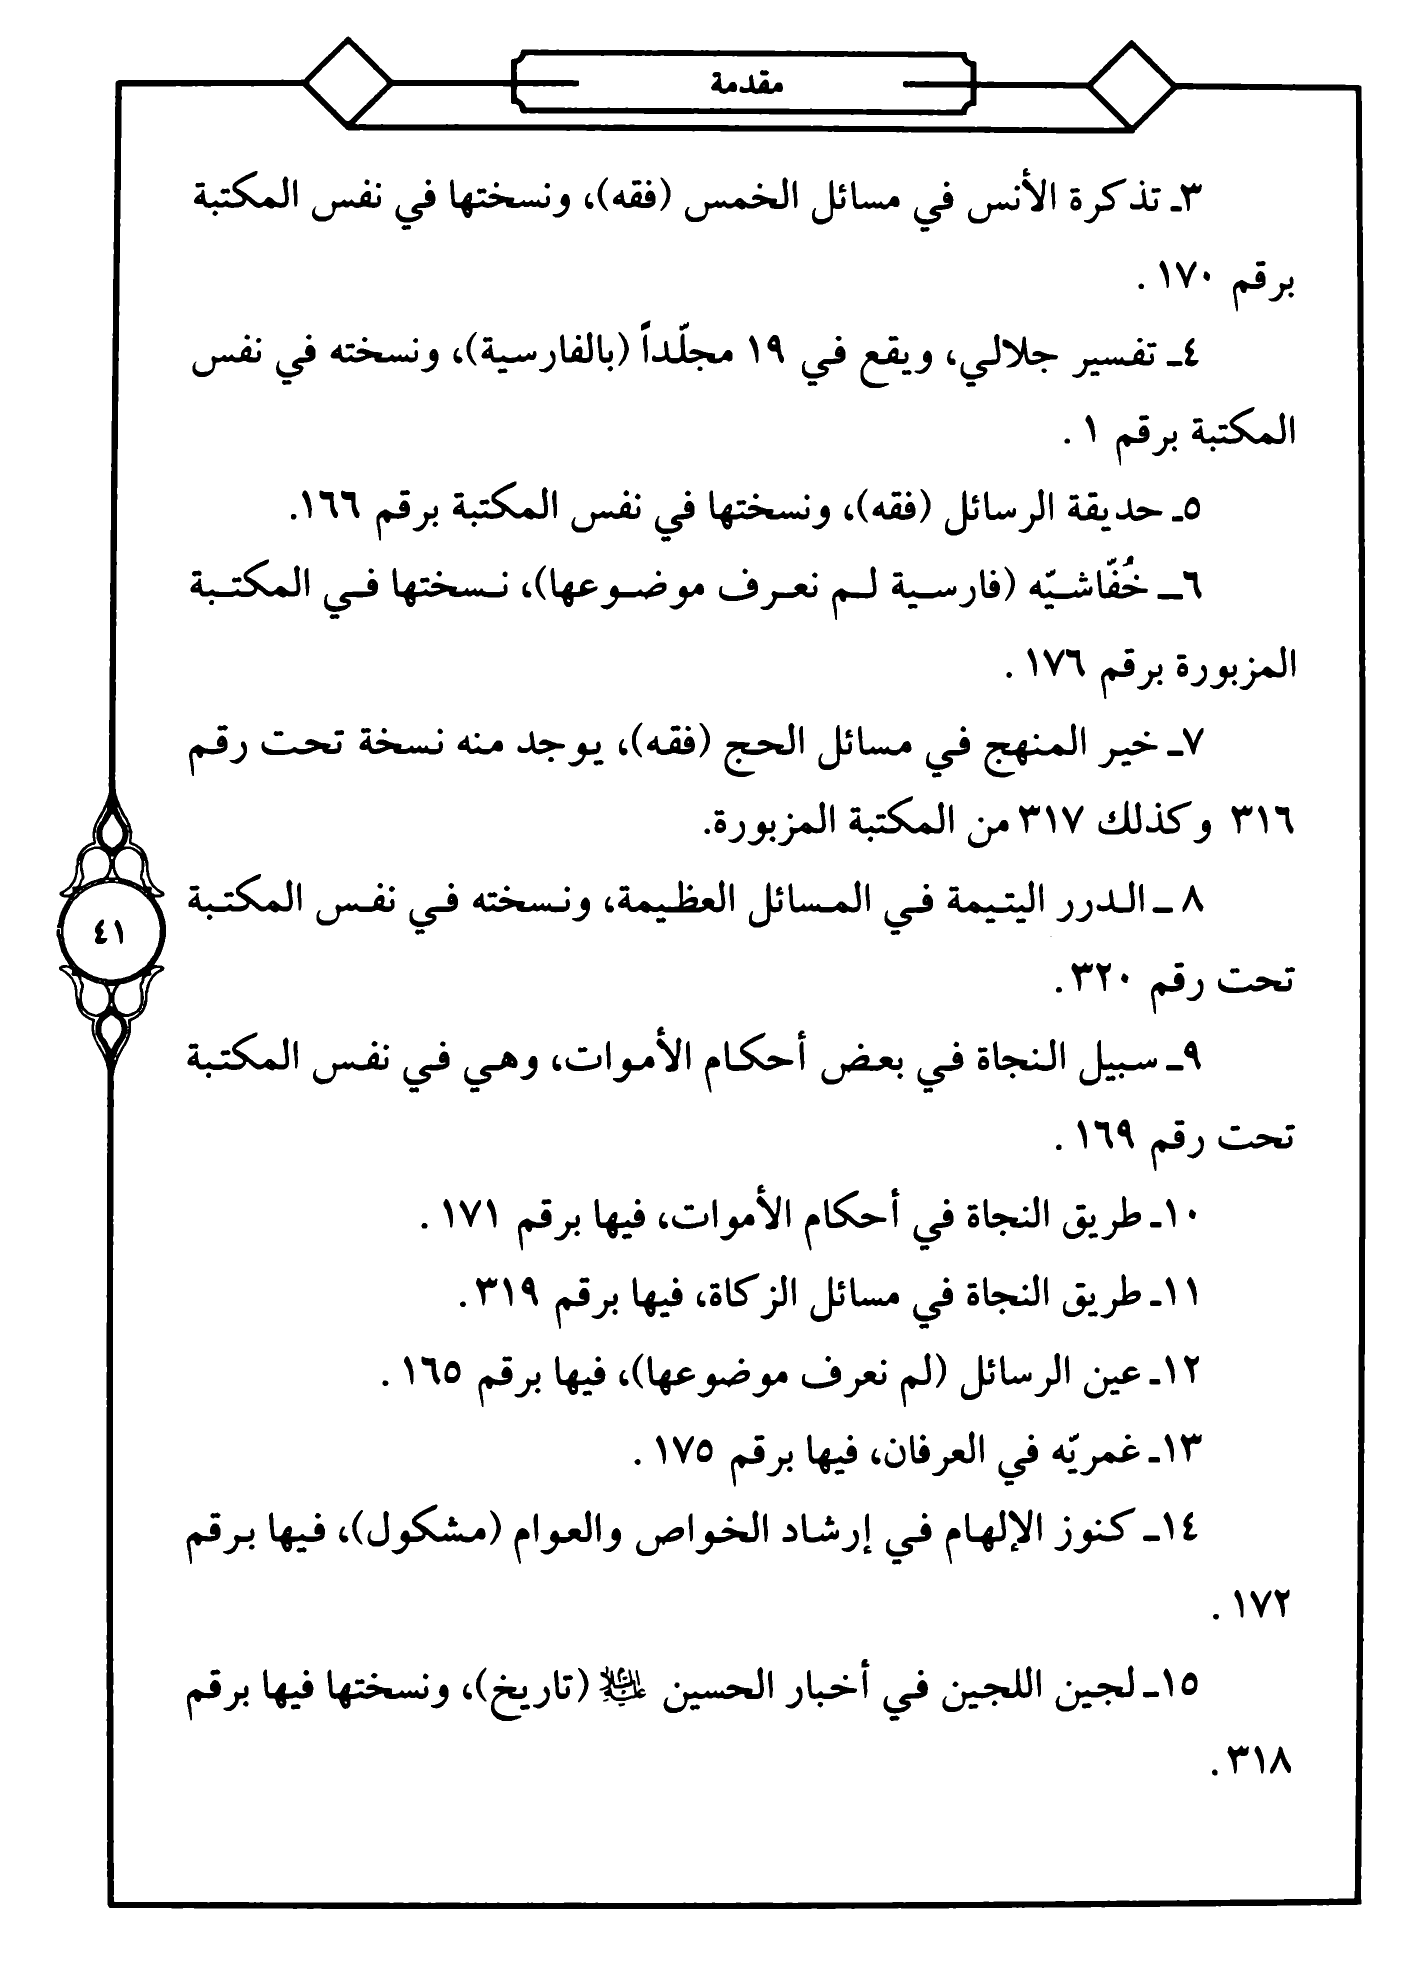 مقدمة
٣ـ تذكرة الأنس في مسائل الخمس (فقه)، ونسختها في نفس المكتبة
برقم ١٧٠ .
٤ـ تفسير جلالي، ويقع في ١٩ مجلّداً (بالفارسية)، ونسخته في نفس
المكتبة برقم ١ .
٥ـ حديقة الرسائل (فقه)، ونسختها في نفس المكتبة برقم ١٦٦.
٦ـ خُفّاشيّه (فارسية لم نعرف موضوعها)، نسختها في المكتبة
المزبورة برقم ١٧٦ .
٧ـ خير المنهج في مسائل الحج (فقه)، يوجد منه نسخة تحت رقم
٣١٦ وكذلك ٣١٧ من المكتبة المزبورة.
٨ ـ الدرر اليتيمة في المسائل العظيمة، ونسخته في نفس المكتبة
تحت رقم ٣٢٠ .
٩ـ سبيل النجاة في بعض أحكام الأموات، وهي في نفس المكتبة
تحت رقم ١٦٩ .
١٠ـ طريق النجاة في أحكام الأموات، فيها برقم ١٧١ .
١١ـ طريق النجاة في مسائل الزكاة، فيها برقم ٣١٩ .
١٢ـ عين الرسائل (لم نعرف موضوعها)، فيها برقم ١٦٥ .
١٣ـ غمريّه في العرفان، فيها برقم ١٧٥ .
١٤ـ كنوز الإلهام في إرشاد الخواص والعوام (مشكول)، فيها برقم
١٧٢ .
١٥ـ لجين اللجين في أخبار الحسين عليه السلام (تاريخ)، ونسختها فيها برقم
٣١٨ .
٤١